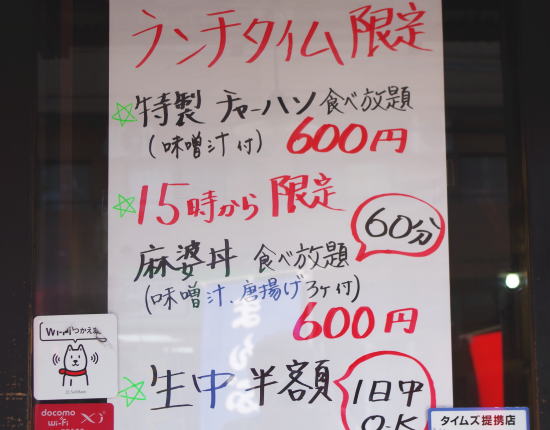 ランチタイム限定
☆特製チャーハン食べ放題
(味噌汁付) 600円
☆15時から限定
60分
麻婆丼 食べ放題
(味噌汁、唐揚げ3ヶ付)
600円
☆生中半額
1日中
O.K
Wi-Fiつかえる
SoftBank
docomo
Wi-Fi
Xi
タイムズ提携店